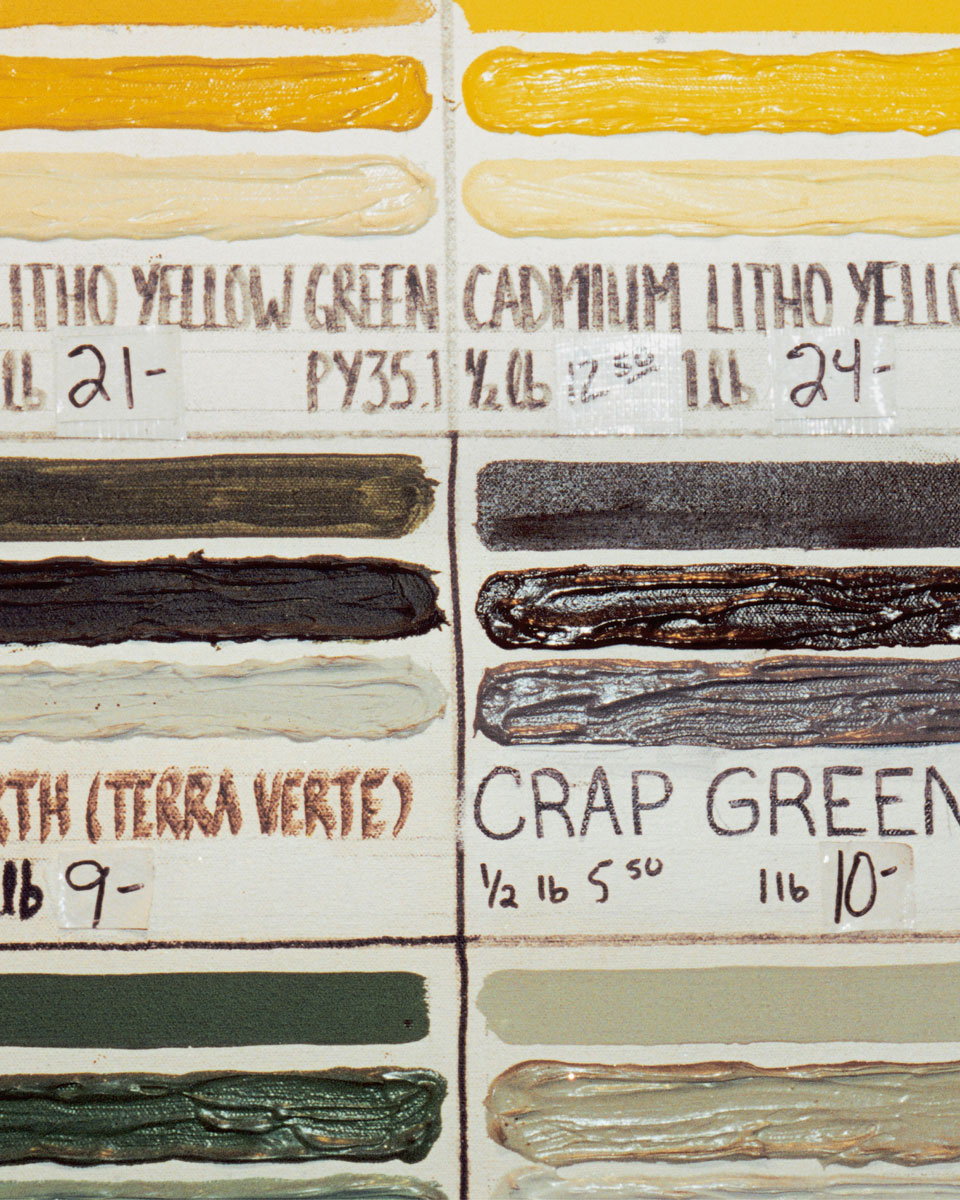 LITHO YELLOW GREEN
lb 21- PY35.1
CADMIUM LITHO YELLO
½ lb 12 50 1 lb 24-
RTH (TERRA VERTE)
lb 9-
CRAP GREEN
1/2 lb 5 50 1 lb 10-